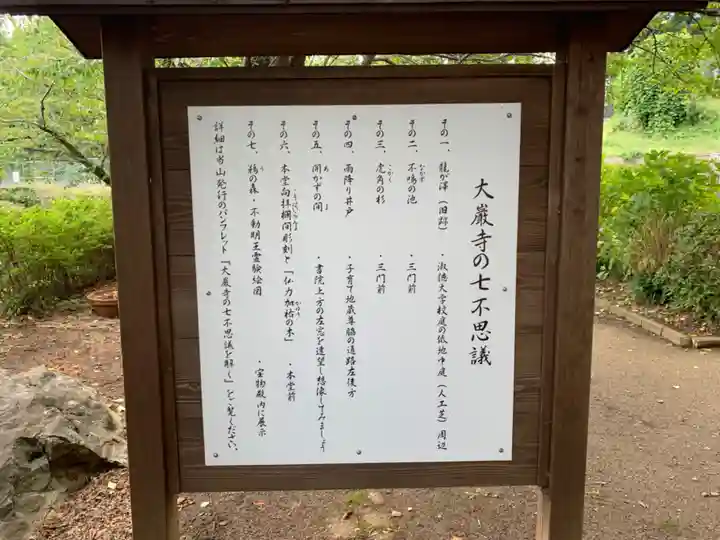 大巌寺の七不思議
その一、龍が澤（旧跡）・淑徳大学校庭の低地中庭（人工芝）周辺
その二、不鳴の池 ・三門前
なかず
その三、虎角の杉 ・三門前
こかく
その四、雨降り井戸 ・子育て地蔵尊脇の通路左後方
その五、開かずの間 ・書院上方の左窓を遠望し想像してみましょう
あ ま
その六、本堂向拝欄間彫刻と『仏力加祐の木』 ・本堂前
その七、鵜の森・不動明王霊験絵図 ・宝物殿内に展示
う
詳細は当山発行のパンフレット『大巌寺の七不思議を解く』をご覧ください。